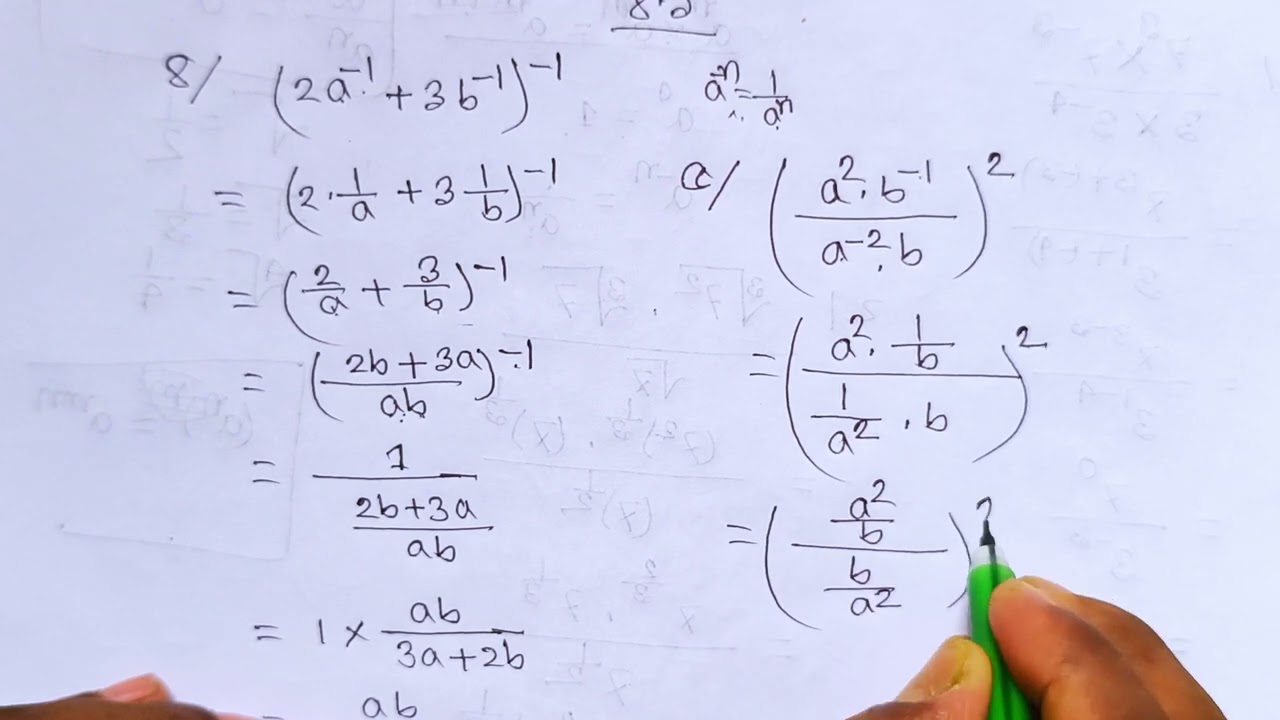 8/ (2a⁻¹ + 3b⁻¹)⁻¹
= (2·1/a + 3 1/b)⁻¹
= (2/a + 3/b)⁻¹
= ((2b+3a)/ab)⁻¹
= 1/((2b+3a)/ab)
= 1 × ab/(3a+2b)
= ab
a⁻ⁿ = 1/aⁿ
/ ((a²·b⁻¹)/(a⁻²·b))²
= ((a²·1/b)/(1/a²·b))²
= ((a²/b)/(b/a²))²